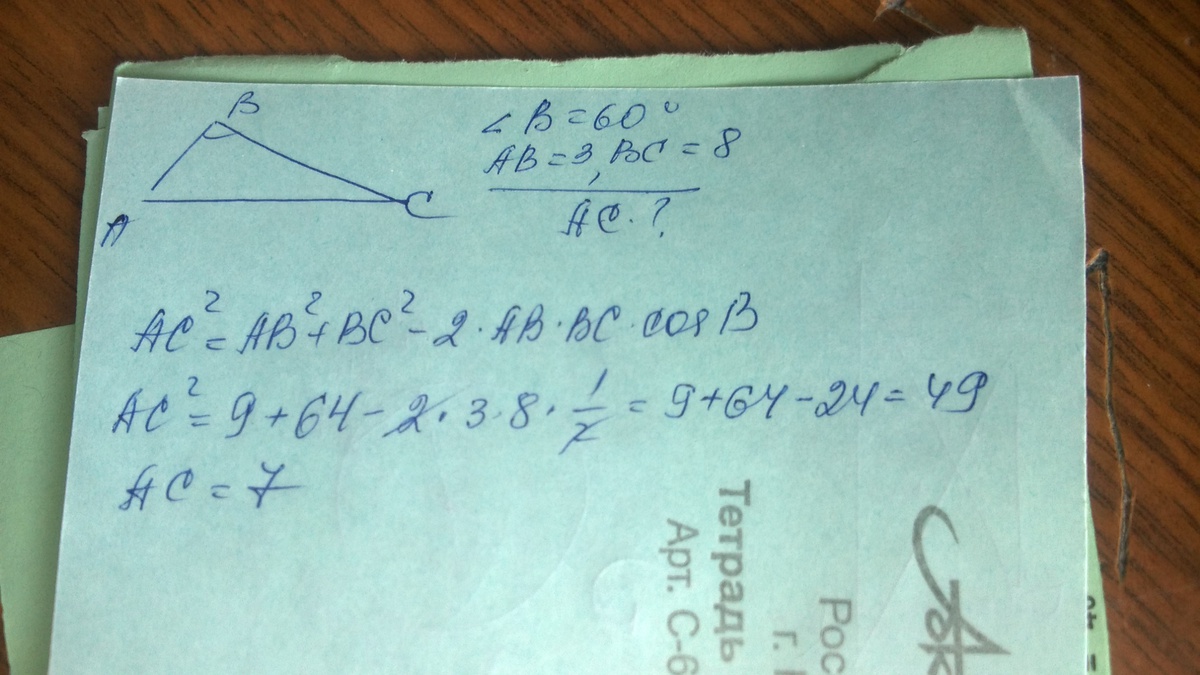 B
A
C
∠ B = 60°
AB = 3, BC = 8
AC - ?
AC² = AB² + BC² - 2 · AB · BC · cos B
AC² = 9 + 64 - 2 · 3 · 8 · 1/2 = 9 + 64 - 24 = 49
AC = 7
Тетрадь
Арт. С-6
Рос
г.